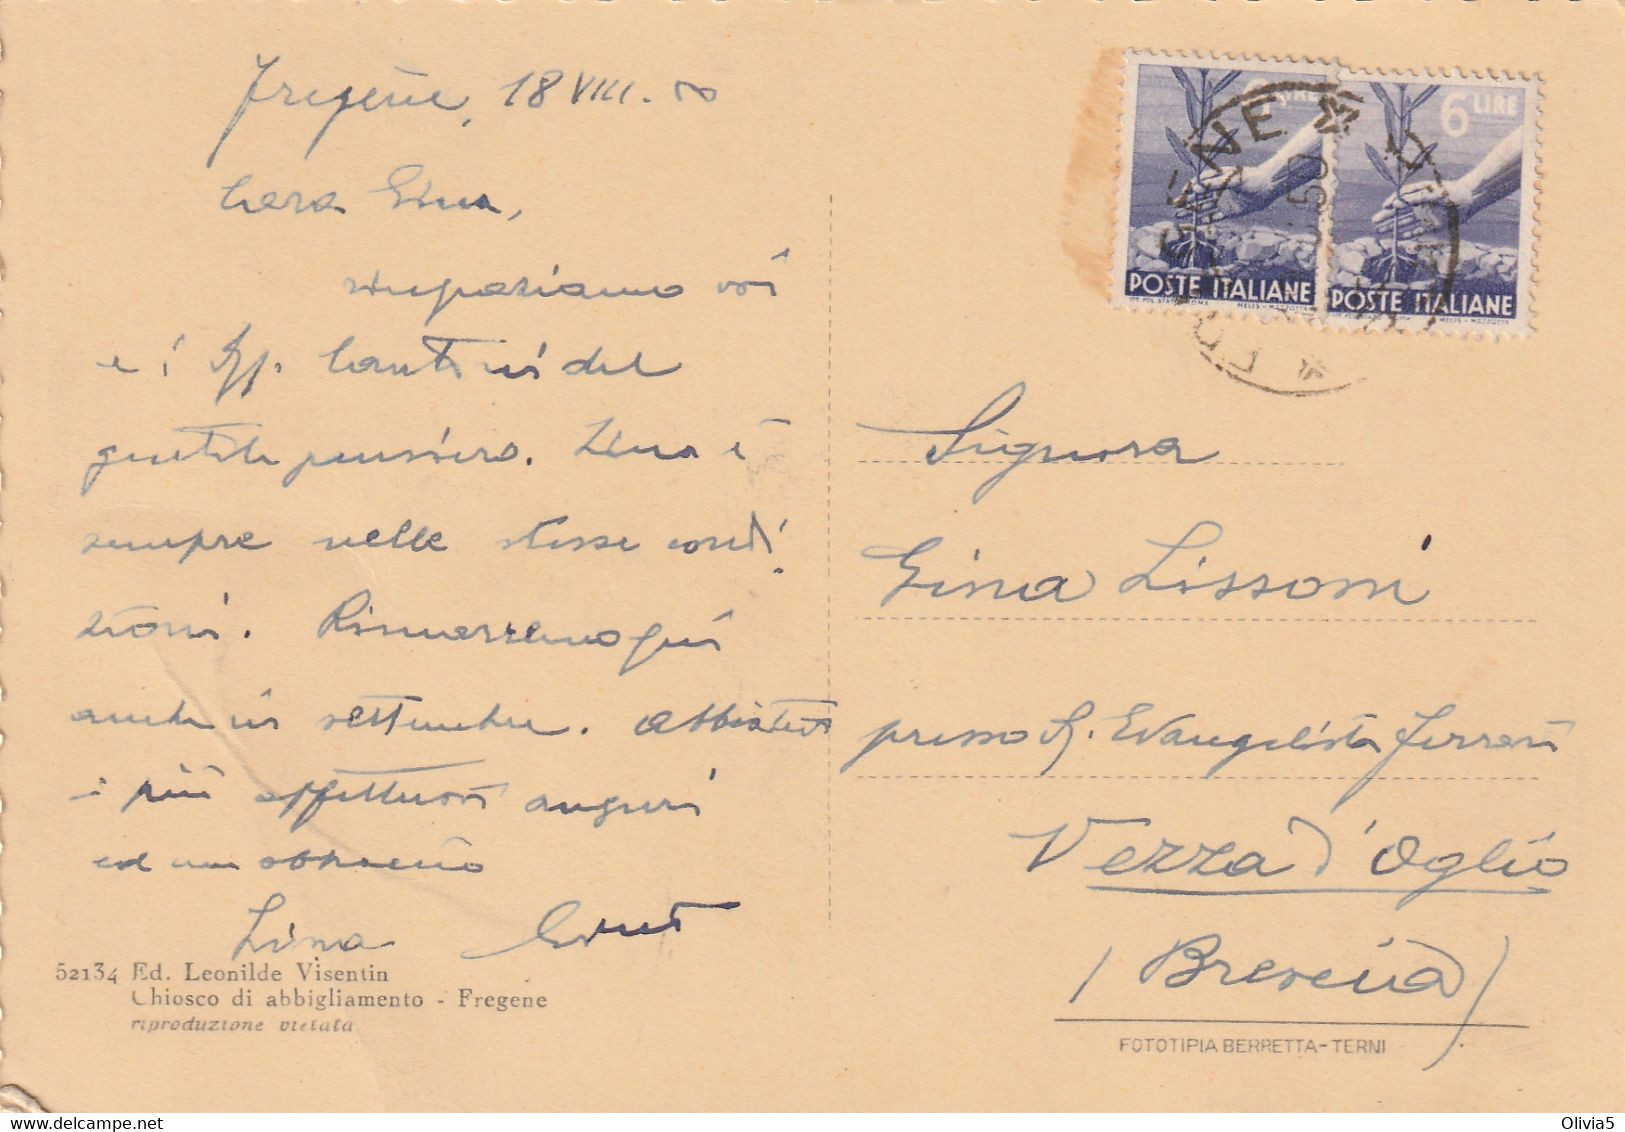 Fregene, 18 VIII. 50
Cara Gina,
ringraziamo voi
e i Sigg. del
gentile pensiero. Lina è
sempre nelle stesse condi
zioni. Rimarremo qui
anche in settembre. Abbiatevi
i più affettuosi auguri
ed un abbraccio
Lina
52134 Ed. Leonilde Visentin
Chiosco di abbigliamento - Fregene
riproduzione vietata
6 LIRE
POSTE ITALIANE
POSTE ITALIANE
Signora
Gina Lissoni
presso S. Evangelista Ferrari
Vezza d'Oglio
(Brescia)
FOTOTIPIA BERRETTA-TERNI
Olivia5